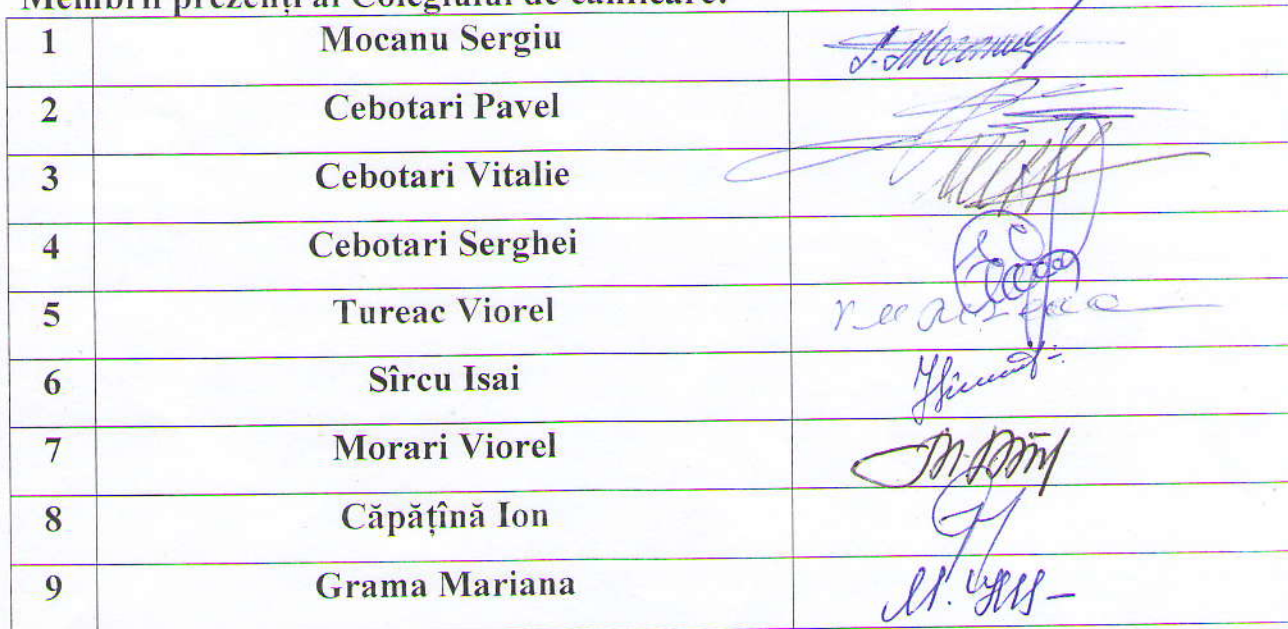 Membrii prezenți ai Colegiului de calificare:
1 Mocanu Sergiu
2 Cebotari Pavel
3 Cebotari Vitalie
4 Cebotari Serghei
5 Tureac Viorel
6 Sîrcu Isai
7 Morari Viorel
8 Căpățînă Ion
9 Grama Mariana